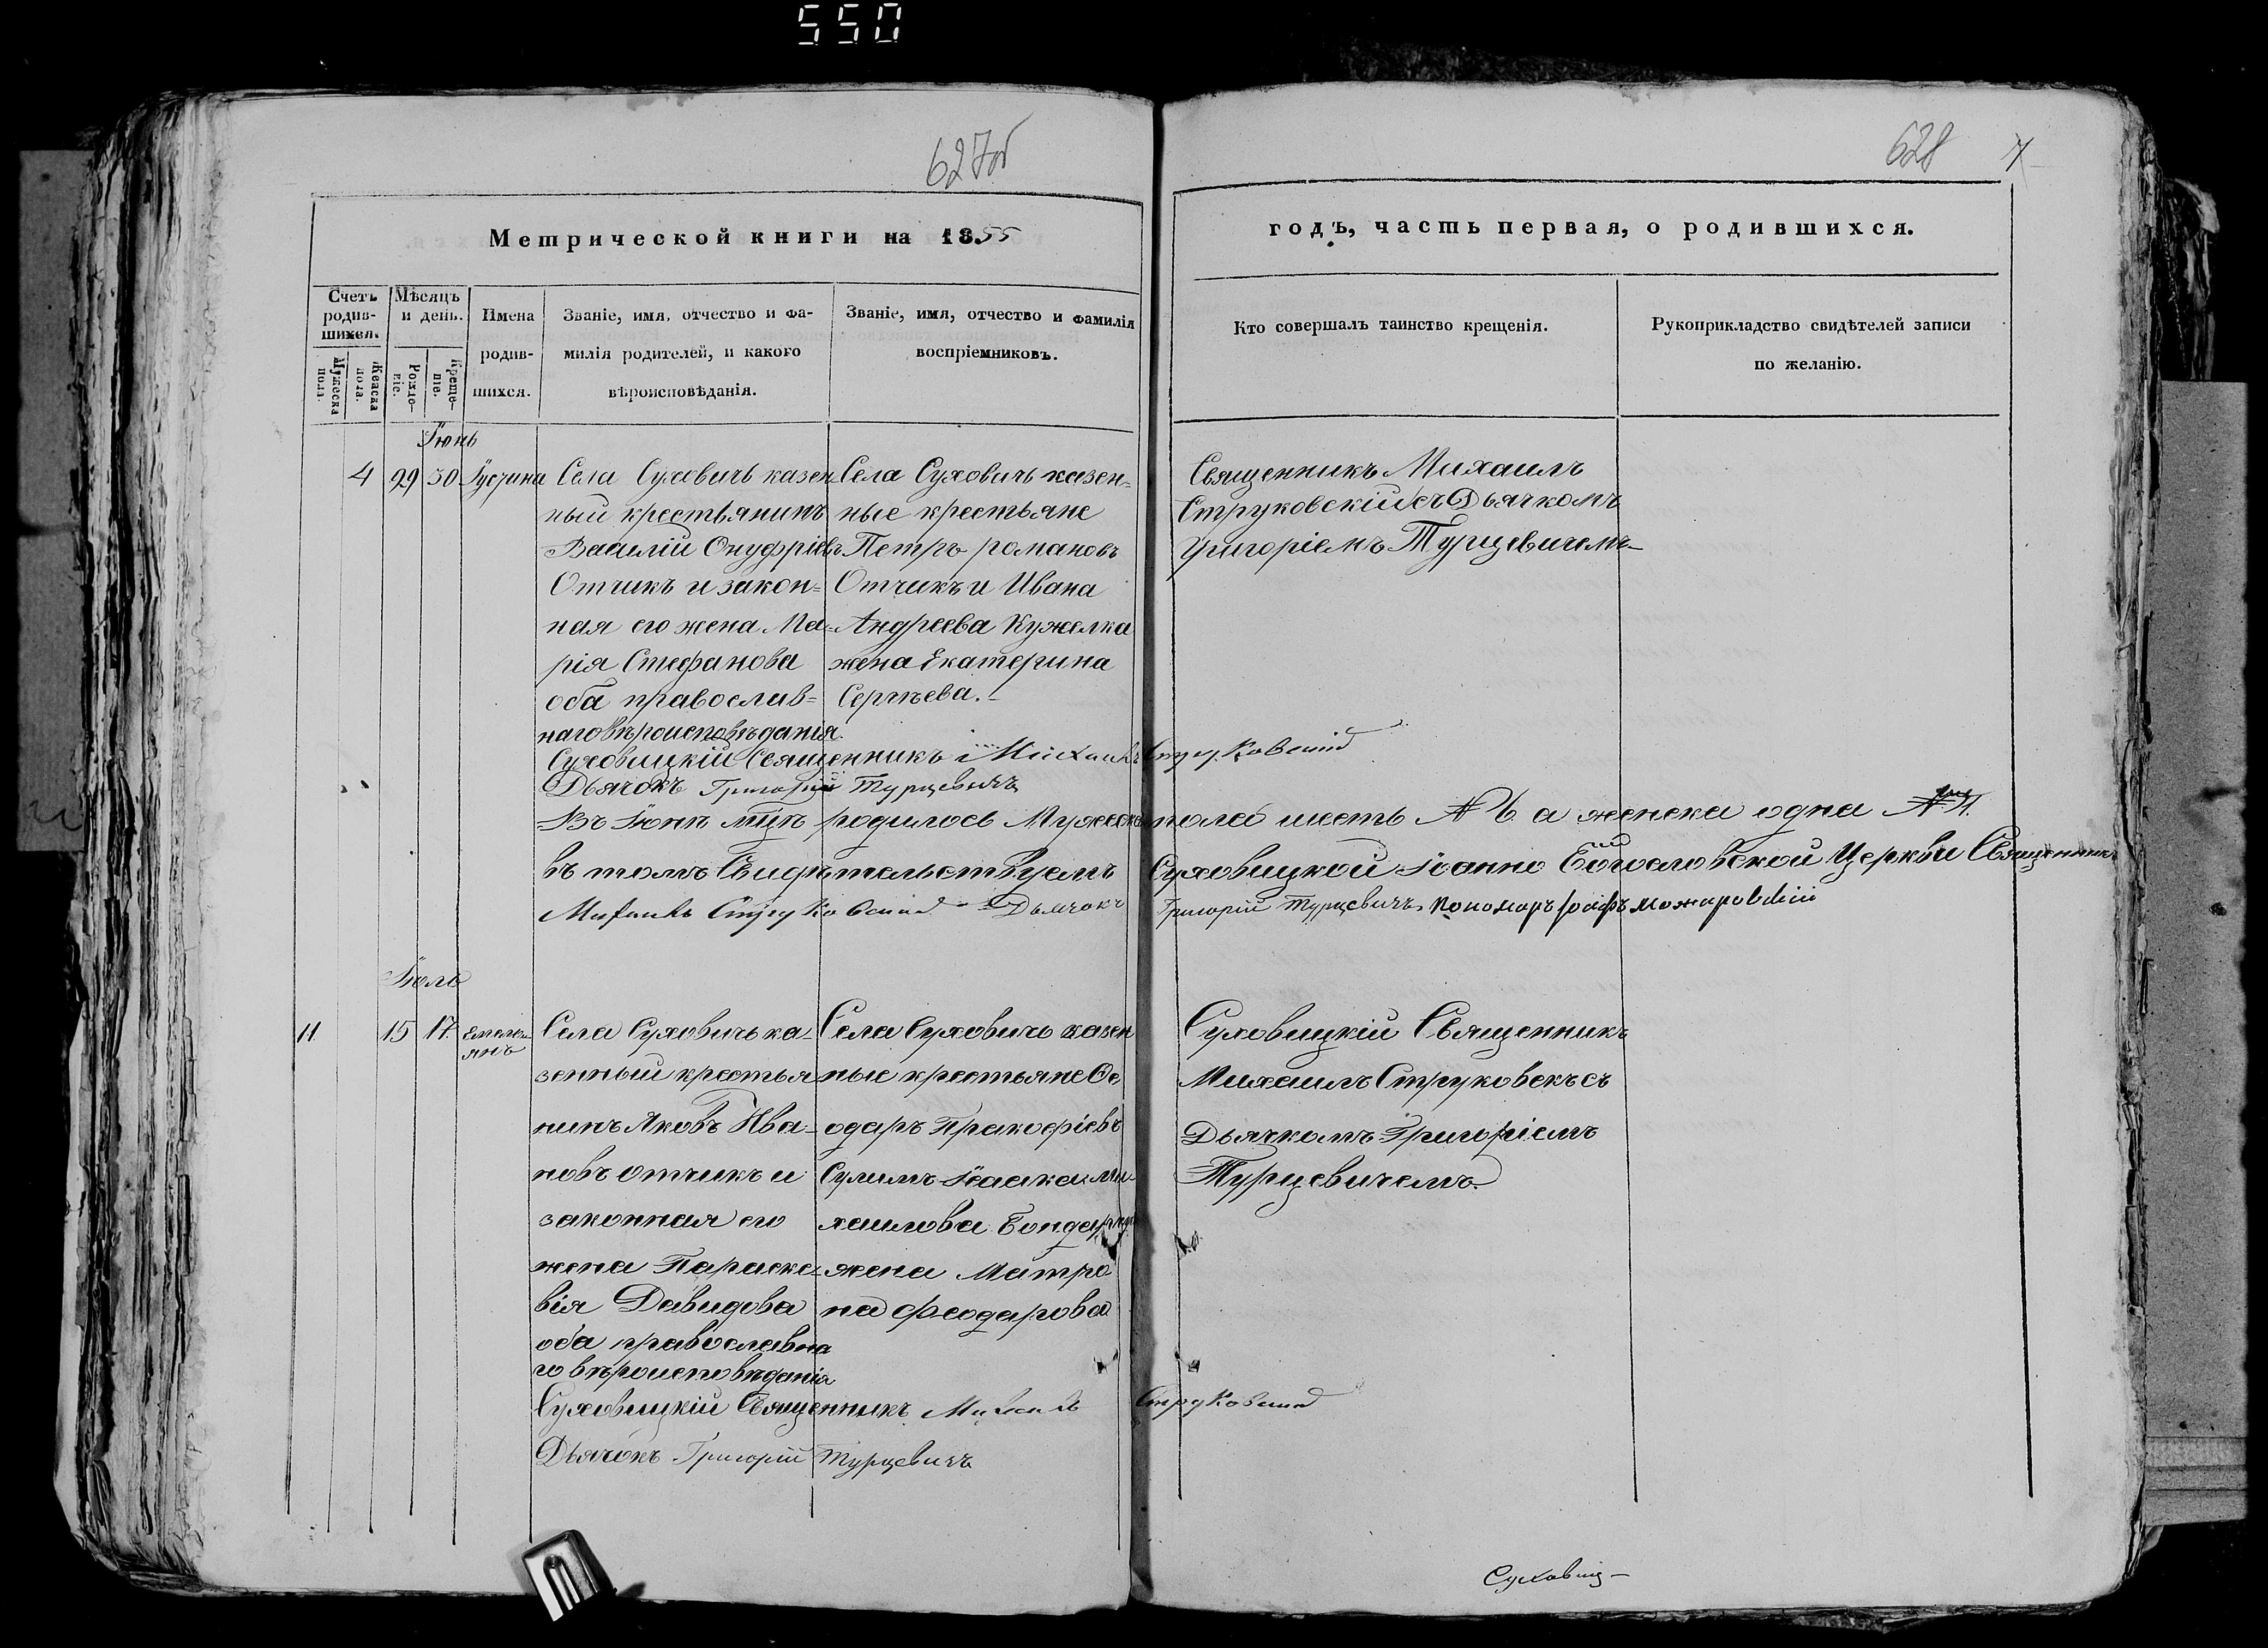 550
627об
628
7
Метрической книги на 1855
годъ, часть первая, о родившихся.
Счетъ родив-шихся.
Мужеска пола.
Женска пола.
Мѣсяцъ и день.
Рожде-ніе.
Креще-ніе.
Имена родив-шихся.
Званіе, имя, отчество и фа-
милія родителей, и какого
вѣроисповѣданія.
Званіе, имя, отчество и фамилія
воспріемниковъ.
Кто совершалъ таинство крещенія.
Рукоприкладство свидѣтелей записи
по желанію.
Іюнь
4 29 30 Іустина
Села Суховичъ казен
ный крестьянинъ
Василій Онуфріевъ
Отчикъ и закон=
ная его жена Ма=
рія Стефанова
оба православ=
наго вѣроисповѣданія.
Села Суховичъ казен=
ные крестьяне
Петръ романовъ
Отчикъ и Ивана
Андреева Кужелка
жена Екатерина
Сергѣева.
Священникъ Михаилъ
Струковскій съ Дьячкомъ
Григоріемъ Турцевичемъ
Суховицкій Священникъ Михаилъ Струковскій
Дьячокъ Григорій Турцевичъ
Въ Іюнѣ мцѣ родилось Мужеска полá шесть № 6. а женска одна № 1.
въ томъ Свидѣтельствуемъ Суховицкой Іоанно Богословской Церкви Священникъ
Михаилъ Струковскій Дьячокъ Григорій Турцевичъ Пономарь Можаровскій
Іюль
11 15 17. Емель-
янъ
Села Суховичъ ка-
зенный крестья
нинъ Яковъ Ива-
новъ отчикъ и
законная его
жена Параске-
вія Давидова
оба православна
го вѣроисповѣданія
Села Суховичъ казен
ные крестьяне Ѳе
одаръ Пракофіевъ
Сулимъ Ісаака ми
хаилова Бондар
жена Матро
на феодарова
Суховицкій Священникъ
Михаилъ Струковскъ съ
Дьячкомъ Григоріемъ
Турцевичемъ.
Суховицкій Священникъ Михаилъ Струковскій
Дьячокъ Григорій Турцевичъ
Суховиц-